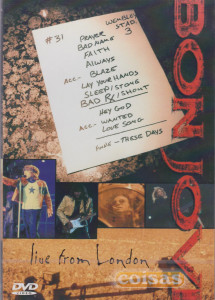 WEMBLEY
STAD.
#31 3
PRAYER
BAD NAME
FAITH
ALWAYS
ACC- BLAZE
LAY YOUR HANDS
SLEEP/STONE
BAD RX/SHOUT
HEY GOD
ACC- WANTED
LOVE SONG
THESE DAYS
BON JOVI
live from London
DVD
VIDEO
coisas